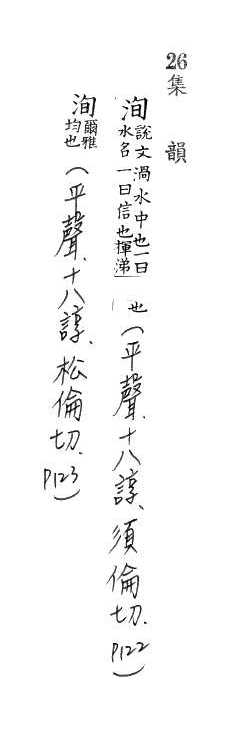 26集 韻
洵說文渦水中也一曰水名一曰信也揮涕也(平聲、十八諄、須倫切.P122)
洵爾雅均也(平聲、十八諄、松倫切.P123)